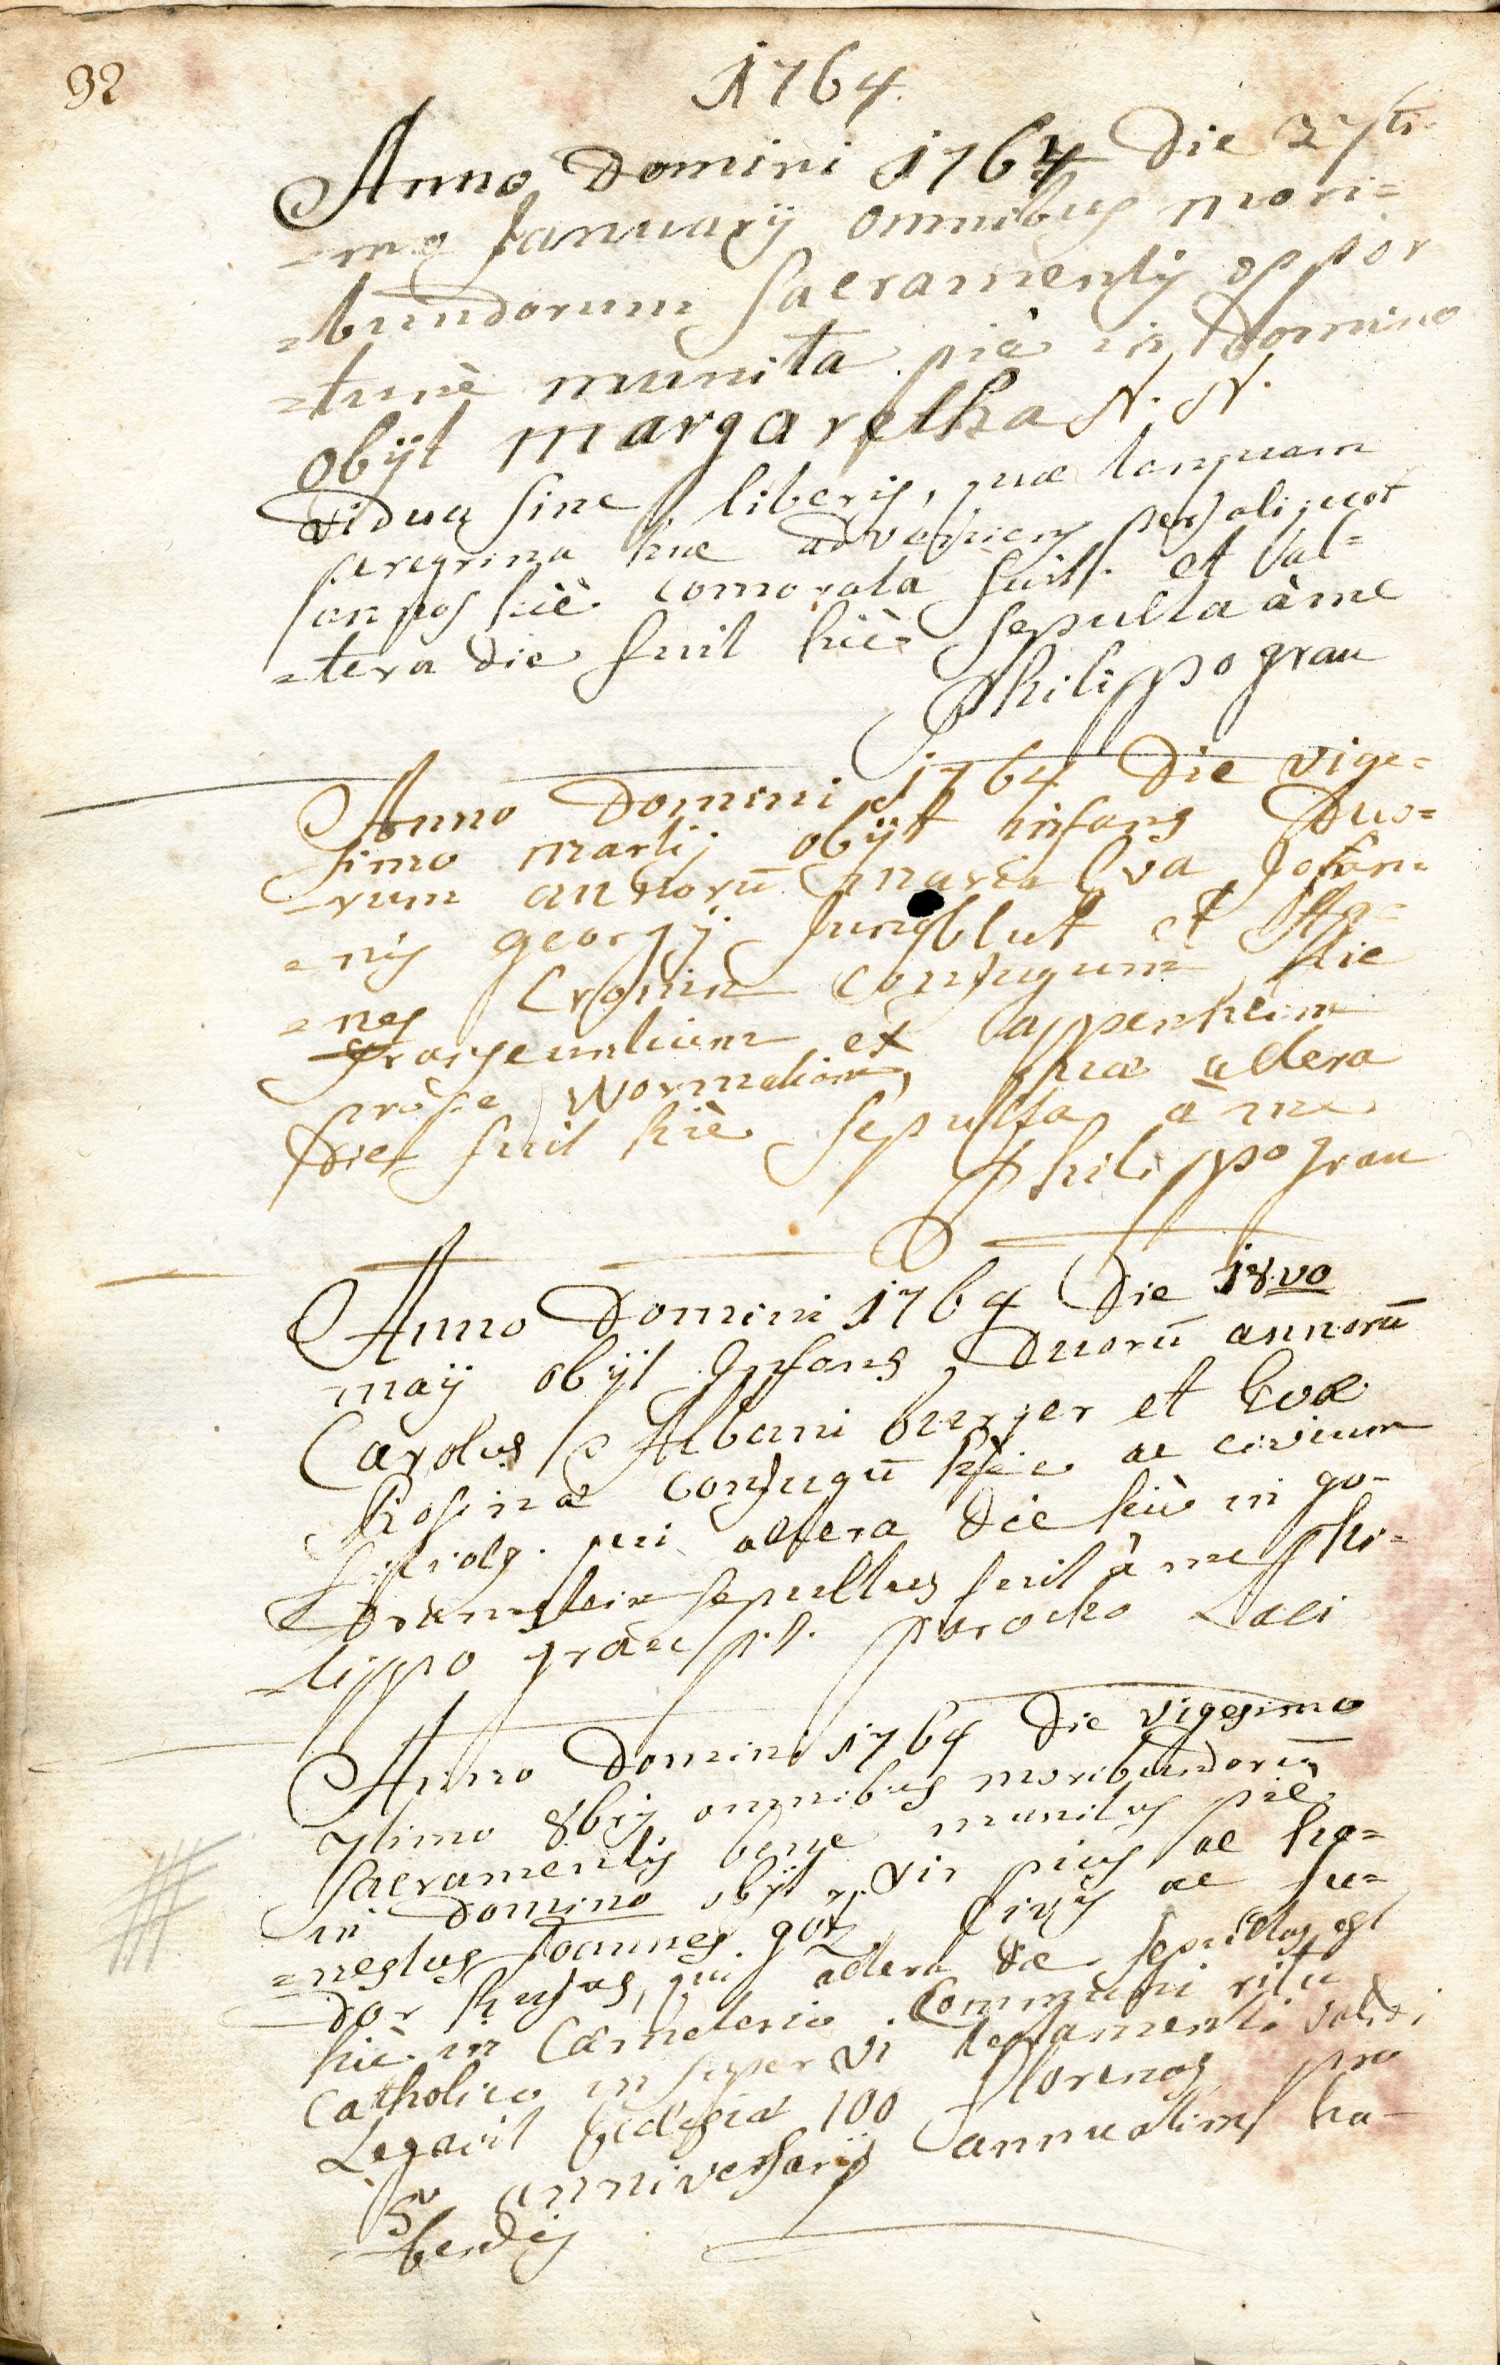 92
1764.
Anno Domini 1764 Die 27ti-
=mo January omnibus mori=
=bundorum Sacramentis oppor
=tunè munita piè in Domino
obijt Margaretha N. N.
vidua sine liberis, quæ tanquam
peregrina huc adveniens per aliquot
annos hic comorata fuit. et al=
=tera die fuit hìc sepulta à me
Philippo grau
Anno Domini 1764 Die vige=
simo martij obijt infans Duo=
=rum annorū maria Eva Johan=
=nis georgij Jungblut et Ag=
=nes Cronin conjugum hic
ex appenheim
prope Wormatiam, quæ altera
Die fuit hìc sepulta à me
Philippo grau
Anno Domini 1764 Die 18vo
maij obijt Infans Duorū annorū
Carolus Albani burger et Evæ
Rosinæ conjugū hic ac civium
qui altera die hìc in go-
sepultus fuit à me Phi-
=lippo grau p.t. parocho Loci
Anno Domini 1764 Die vigesimo
7timo 8bris omnibus moribundorū
Sacramentis bene munitus piè
in Domino obijt vir pius ac ho=
=nestus Joannes götz Civis ac su=
=dor hujas, qui altera die sepultus est
hìc in Cæmeterio Communi ritu
Catholico insuper vi testamenti validi
Legavit Ecclesiæ 100 florenos pro
anniversarijs annuatim ha-
=bendis